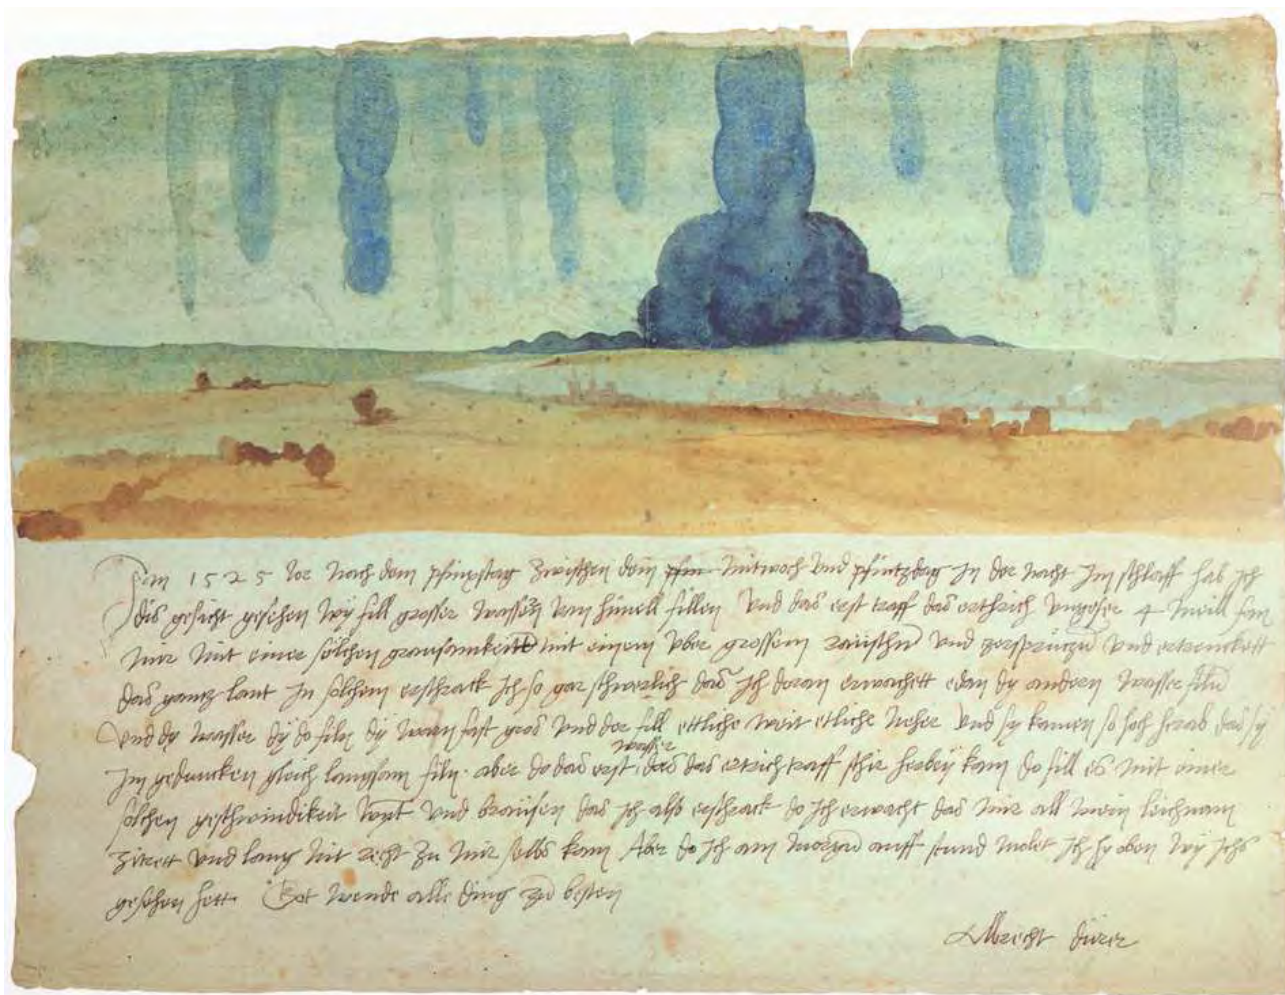 Im 1525 Jor nach dem pfinxstag zwischen dem pfin mitwoch und pfintzdag in der nacht im schlaff hab ich
dis gesicht gesehen wy fill grosser wassern vom himell fillen Und das erst traff das erthrich ungefer 4 meill fan
mir mit einer sölchen grausamkeitt mit einem uber grossem raüschn und zersprützn und ertrenckett
das gantz lant In sölchem erschrack ich so gar schwerlich das ich doran erwachett edan dy andern wasser filn
Und dy wasser dy do filn dy warn fast gros und der fill ettliche weit etliche neher und sy kamen so hoch herab das sy
im gedancken gleich langsam filn aber do das erst wasser das das ertrich traff schir herbey kam do fill es mit einer
sölchen geschwindikeit wynt und braüsen das ich also erschrack do ich erwacht das mir all mein leichnam
zitrett und lang nit recht zu mir selbs kam Aber do ich am morgn auff stund molet ich hy oben wy ichs
gesehen hett. Got wende alle ding zu besten
Albrecht dürer